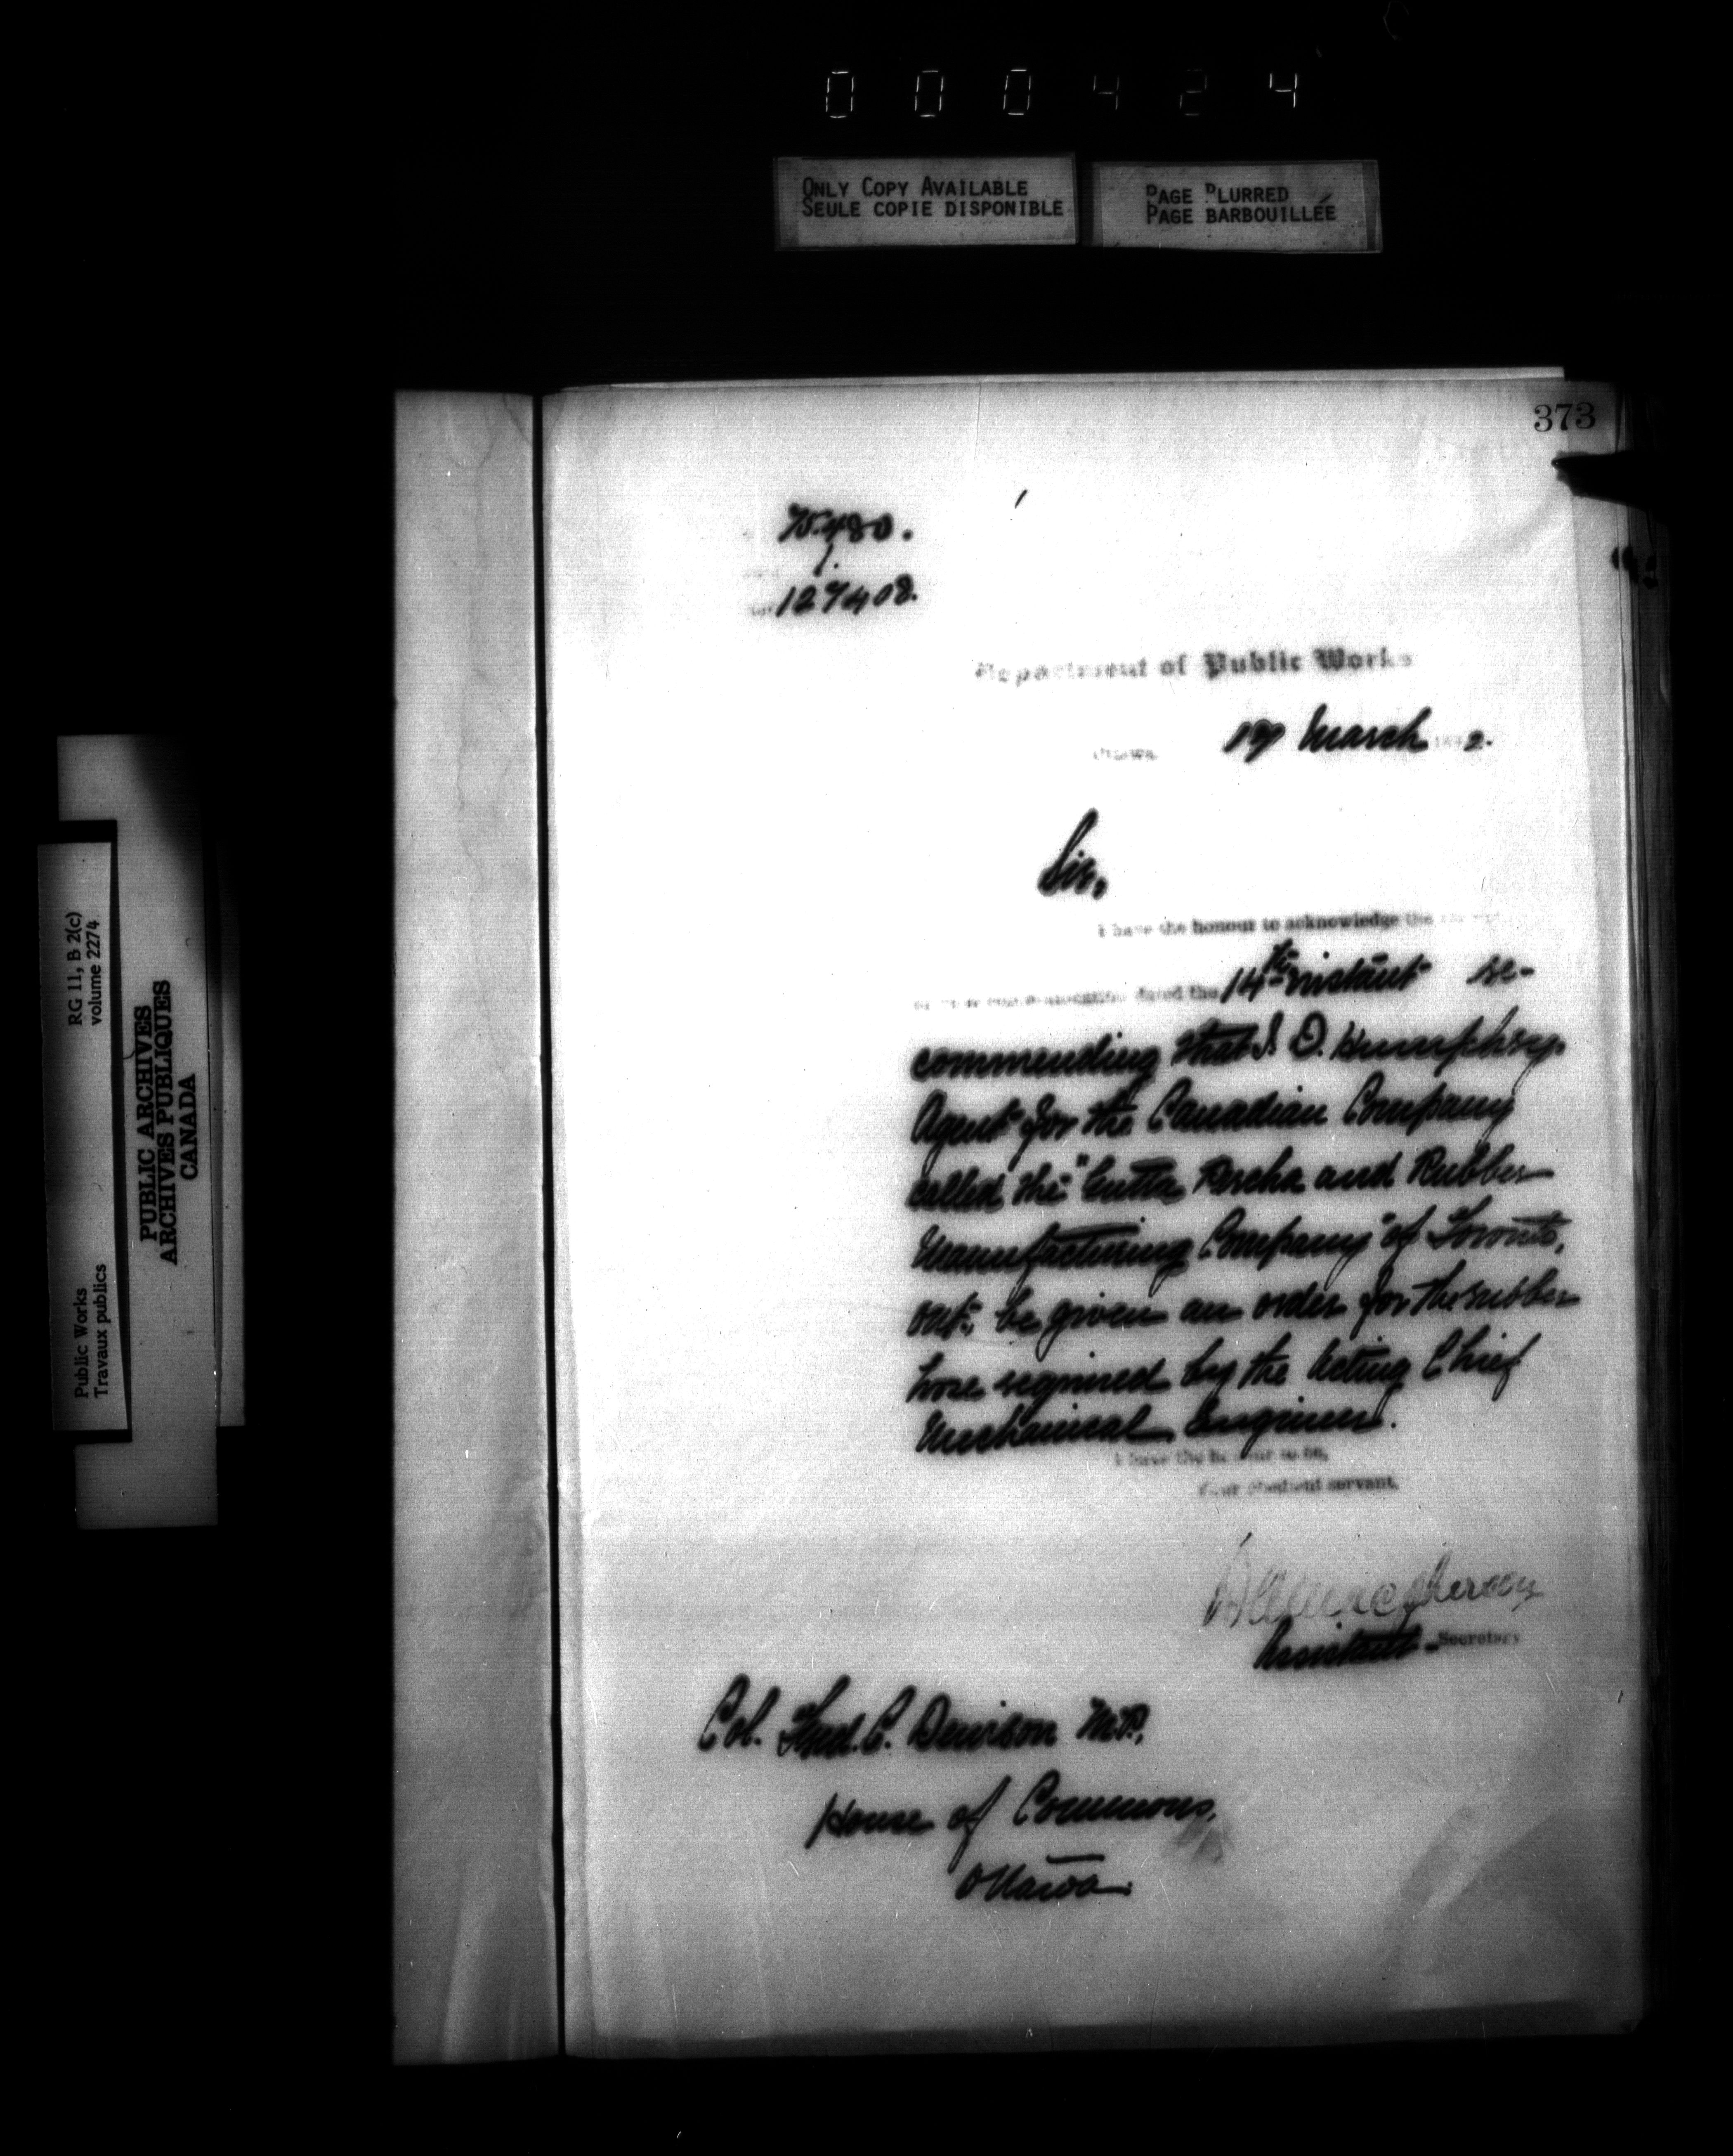 000424
ONLY COPY AVAILABLE
SEULE COPIE DISPONIBLE
PAGE BLURRED
PAGE BARBOUILLÉE
373
75480.
1.
127408.
Department of Public Works
Ottawa, March 1892.
Sir,
I have the honour to acknowledge the
of your communication dated the 14th instant re-
commending that J. D. Humphrey
Agent for the Canadian Company
called the "Gutta Percha and Rubber
Manufacturing Company" of Toronto,
Ont., be given an order for the rubber
hose required by the Acting Chief
Mechanical Engineer.
I have the honour to be,
Your obedient servant,
Assistant Secretary
Col. Fred. C. Denison M.P.,
House of Commons,
Ottawa.
Public Works
Travaux publics
RG 11, B 2(c)
volume 2274
PUBLIC ARCHIVES
ARCHIVES PUBLIQUES
CANADA